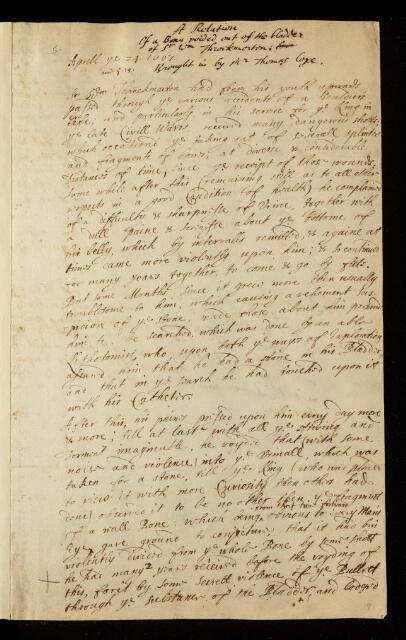 A Relation
Of a Bone voided out of the bladder
of Sr Wm Throckmorton;
Aprill ye 24. 1667.
Brought in by Mr Thomas Coxe.
Sr Wm Throckmorton had from his youth upwards
passed through ye various accidents of a Souldiers
life; and particularly in his service for ye King in
ye late Civill Warrs, received many dangerous shots:
which occasiond ye taking out of small splinters
and fragments of bones, at diverse & considerable
distances of time, since ye receipt of those wounds.
Some while after this (remaining still as to all other
respects in a good Condition of health) he complained
of a difficulty & sharpnesse of Urine, together with
a dull paine & straitnesse about ye bottome of
his belly, which by intervalls remitted, & againe at
times came more violently upon him; & so continued
for many years together, to come & go by fits.
But some Months since it grew more then usually
troublesome to him, which causing a vehement sus-
picion of ye stone, made those about him perswade
him to be searched, which was done by an able
Lithotomist, who, upon both ye ways of Exploration
assured him, that he had a stone in his Bladder,
and that in ye search he had touched upon it
with his Catheter.
After this, his pains pressed upon him every day more
& more; till at last with all ye straining and
torment imaginable, he voyded that (with some
noise and violence) into ye Urinall, which was
taken for a stone, till ye King (who was pleased
to view it with more Curiosity then others had
done) observed it to be no other then ye fragment
of a small Bone: which being obvious to any Mans
Eye, gave ground to conjecture, that it had bin
violently divided from ye whole Bone by some shott
he has many years received before the voyding of
this, forc't by some secrett violence of ye Bullett
through ye substance of the Bladder, and lodg'd